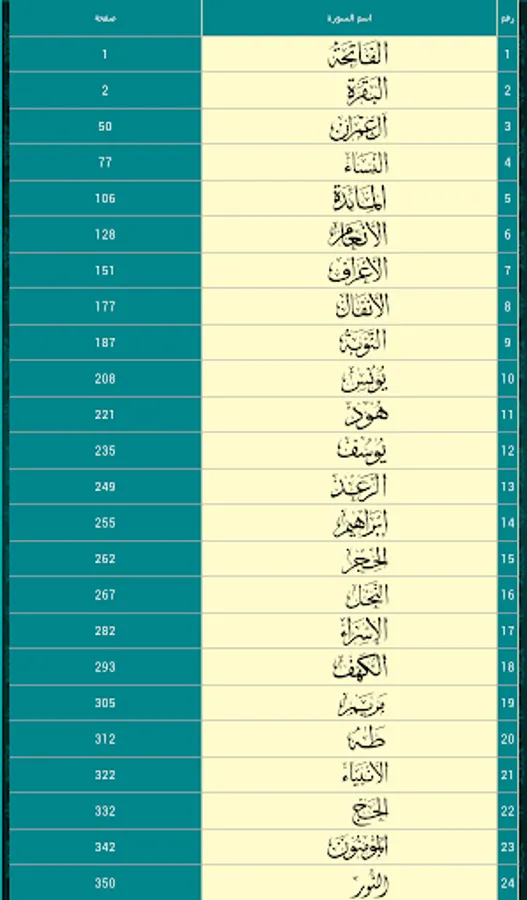 رقم اسم السورة صفحة
1 الفَاتِحَةُ 1
2 البَقَرَة 2
3 آل عِمْرَان 50
4 النِّسَاءُ 77
5 المَائدَة 106
6 الأَنْعَام 128
7 الأَعْرَاف 151
8 الأَنفَال 177
9 التَّوْبَة 187
10 يُونُس 208
11 هُود 221
12 يُوسُف 235
13 الرَّعْد 249
14 إبراهِيم 255
15 الحِجْر 262
16 النَّحْل 267
17 الإِسْرَاءُ 282
18 الكَهْف 293
19 مَرْيَم 305
20 طه 312
21 الأَنبِيَاءُ 322
22 الحَجّ 332
23 المُؤْمِنُون 342
24 النُّور 350